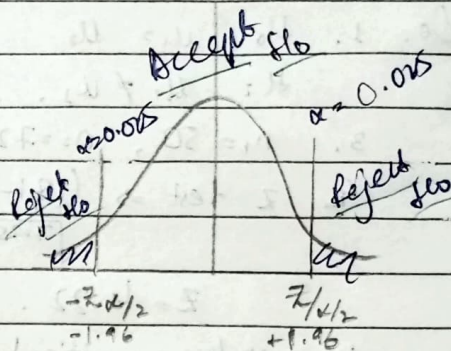 Accept Ho
α=0.025
α = 0.025
Reject Ho
Reject Ho
-Zα/2
Z/α/2
-1.96
+1.96